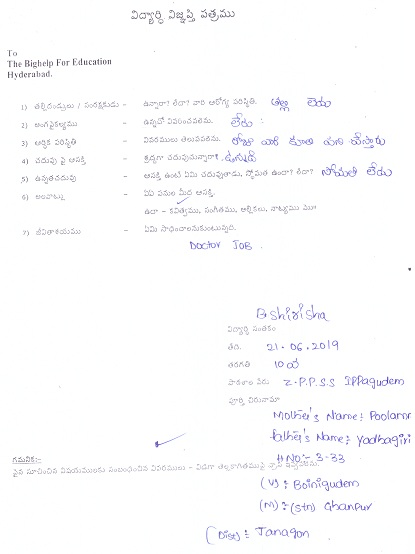 విద్యార్థి విజ్ఞప్తి పత్రము
To
The Bighelp For Education
Hyderabad.
1) తల్లిదండ్రులు / సంరక్షకుడు - ఉన్నారా? లేదా? వారి ఆరోగ్య పరిస్థితి. తల్లి లేదు
2) అంగవైకల్యము - ఉన్నచో వివరించవలెను. లేదు.
3) ఆర్థిక పరిస్థితి - వివరములు తెలుపవలెను. రోజు వారి కూలి పని చేస్తారు
4) చదువు పై ఆసక్తి - శ్రద్ధగా చదువుచున్నారా?
5) ఉన్నతచదువు - ఆసక్తి ఉంటే ఏమి చదువుతాడు, స్తోమత ఉందా? లేదా? స్తోమత లేదు
6) అలవాట్లు - ఏఏ పనుల మీద ఆసక్తి.
ఉదా - కవిత్వము, సంగీతము, అల్లికలు, నాట్యము
7) జీవితాశయము - ఏమి సాధించాలనుకుంటున్నది.
DOCTOR JOB.
B. Shirisha
విద్యార్థి సంతకం
తేది. 21-06-2019
తరగతి 10 వ
పాఠశాల పేరు Z.P.P.S.S IPPagudem
పూర్తి చిరునామా
Mother's Name:
father's Name: Yadhagiri
గమనిక:- H NO:- 3-33
పైన సూచించిన విషయములకు సంబంధించిన వివరములు - విడిగా తెల్లకాగితముపై
(V): Boinigudem
(M): (Stn) Ghanpur
(Dist): Jangaon